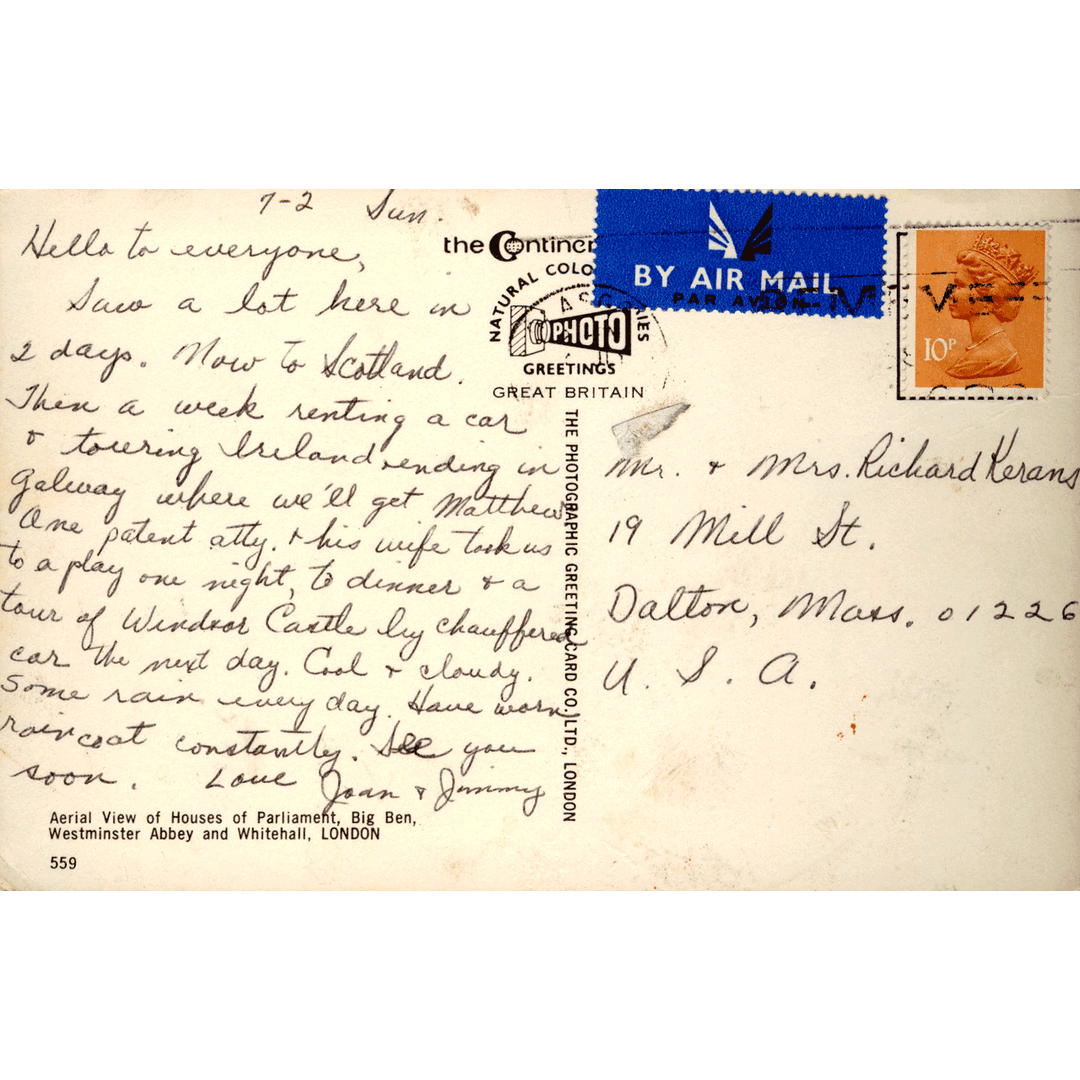 7-2 Sun.
Hello to everyone,
Saw a lot here in
2 days. Now to Scotland.
Then a week renting a car
& touring Ireland, ending in
Galway where we'll get Matthew.
One patent atty. & his wife took us
to a play one night, to dinner & a
tour of Windsor Castle by chauffered
car the next day. Cool & cloudy.
Some rain every day. Have worn
raincoat constantly. See you
soon. Love Joan & Jimmy
Aerial View of Houses of Parliament, Big Ben,
Westminster Abbey and Whitehall, LONDON
559
the Continen
NATURAL COLO
SERIES
PHOTO
GREETINGS
GREAT BRITAIN
THE PHOTOGRAPHIC GREETING CARD CO. LTD., LONDON
BY AIR MAIL
PAR AVION
10P
Mr. & Mrs. Richard Kerans
19 Mill St.
Dalton, Mass. 01226
U. S. A.